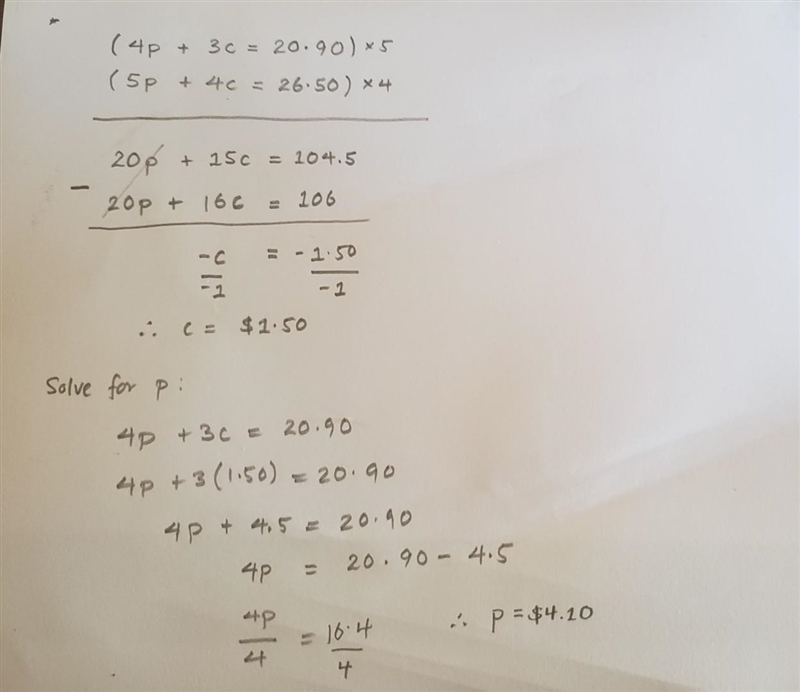 (4p + 3c = 20.90) × 5
(5p + 4c = 26.50) × 4
20p + 15c = 104.5
− 20p + 16c = 106
-c/-1 = -1.50/-1
∴ c = $1.50
Solve for p:
4p + 3c = 20.90
4p + 3(1.50) = 20.90
4p + 4.5 = 20.90
4p = 20.90 - 4.5
4p/4 = 16.4/4 ∴ p = $4.10